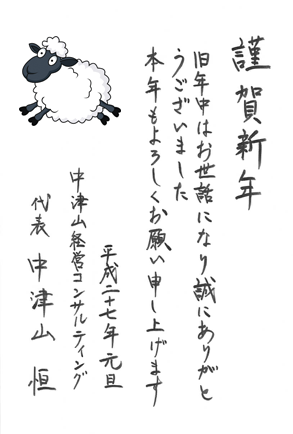 謹賀新年
旧年中はお世話になり誠にありがと
うございました
本年もよろしくお願い申し上げます
平成二十七年元旦
中津山経営コンサルティング
代表 中津山 恒